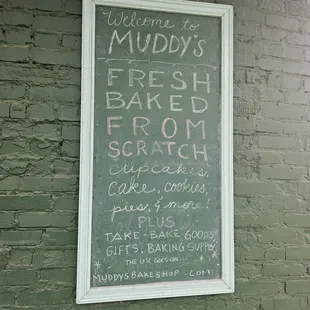 Welcome to
MUDDY'S
FRESH
BAKED
FROM
SCRATCH
cupcakes,
cake, cookies,
pies, & more!
PLUS
TAKE-BAKE GOODS
GIFTS, BAKING SUPPLY
THE LIST GOES ON...
MUDDYSBAKESHOP.COM